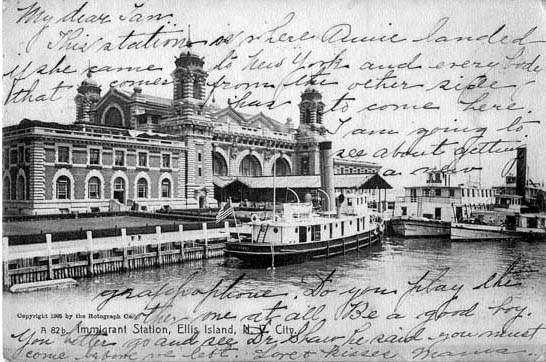 My dear Ian.
This station is where Annie landed
if she came to New York and every body
that comes from the other side
has to come here.
I am going to
see about getting
a new
Copyright 1905 by the Rotograph Co.
graphophone. Do you play the
other one at all Be a good boy.
A 82b. Immigrant Station, Ellis Island, N. Y. City.
You better go and see Dr Shaw he said you must
come when we left. Love & kisses Mamma.